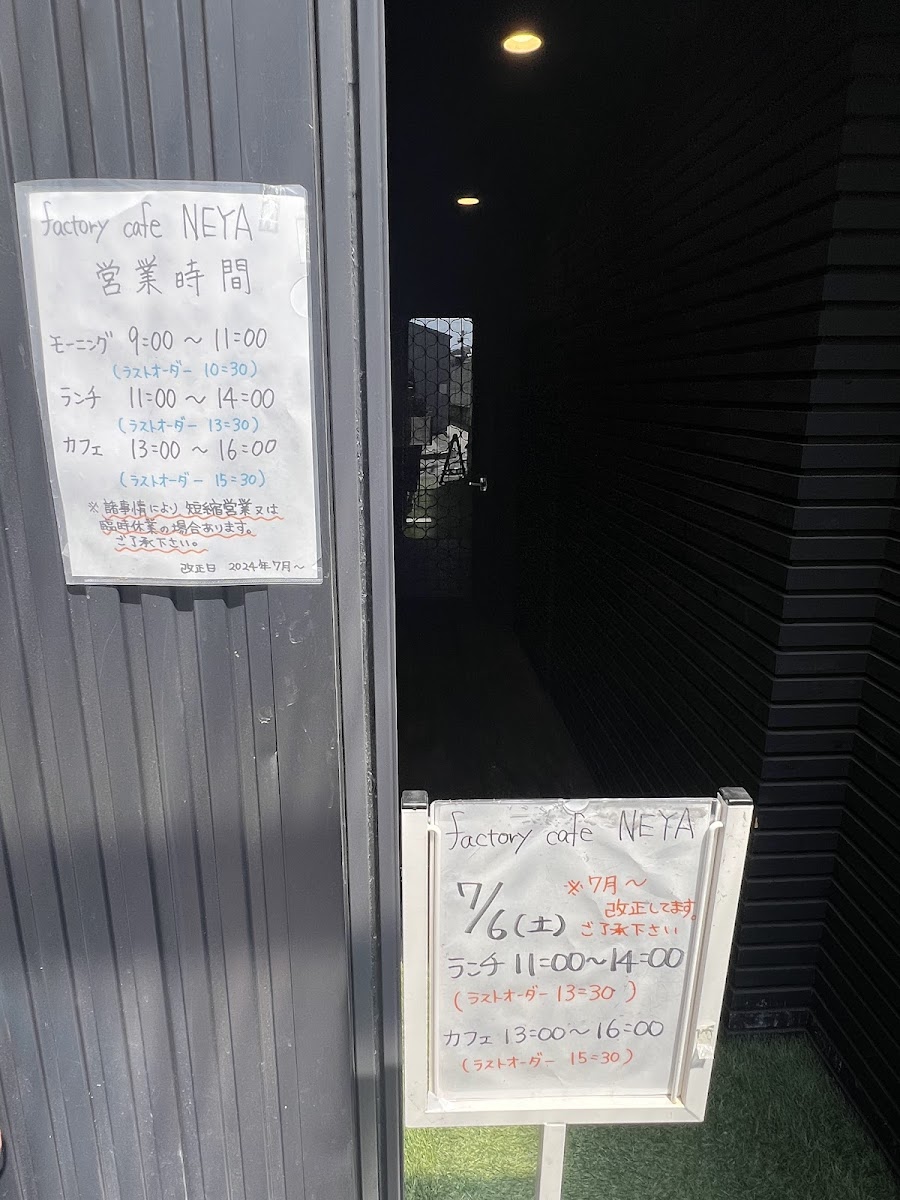 factory cafe NEYA
営業時間
モーニング 9:00 〜 11:00
(ラストオーダー 10:30)
ランチ 11:00 〜 14:00
(ラストオーダー 13:30)
カフェ 13:00 〜 16:00
(ラストオーダー 15:30)
※ 諸事情により 短縮営業又は
臨時休業の場合あります。
ご了承下さい。
改正日 2024年7月〜
factory cafe NEYA
7/6(土)
※7月〜
改正してます。
ご了承下さい
ランチ 11:00〜14:00
(ラストオーダー 13:30)
カフェ 13:00〜16:00
(ラストオーダー 15:30)